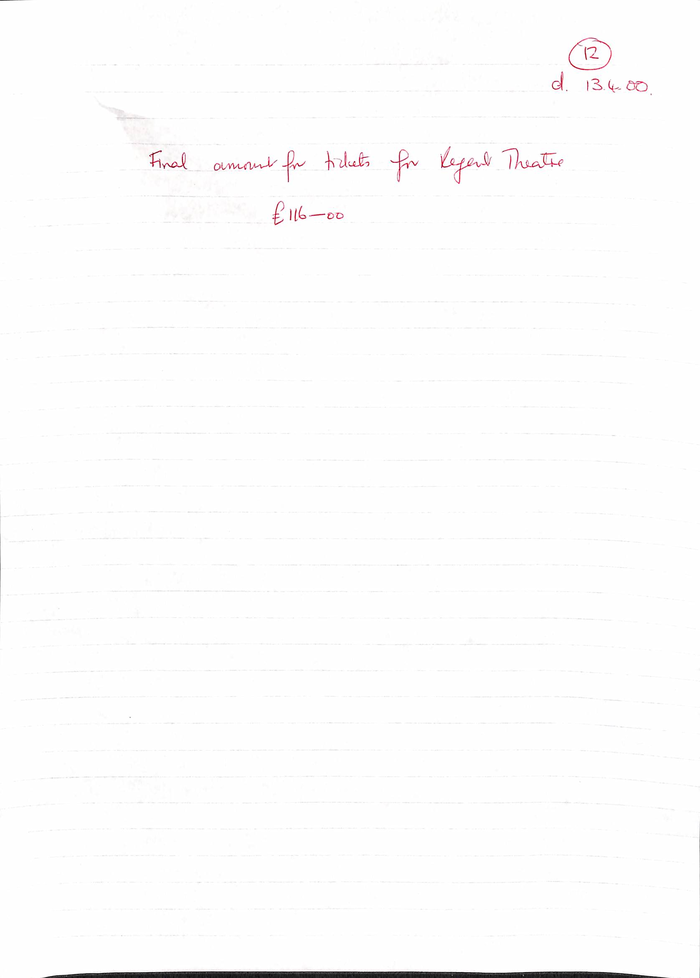 12
d. 13.4.00.
Final amount for tickets for Regent Theatre
£116—00